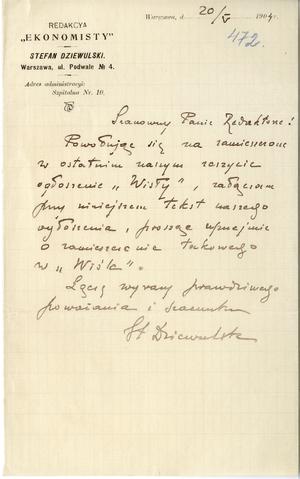 REDAKCYA
„EKONOMISTY"
STEFAN DZIEWULSKI.
Warszawa, ul. Podwale № 4.
Adres administracyi:
Szpitalna Nr. 10.
Warszawa, d. 20/V 1904 r.
472.
Szanowny Panie Redaktorze!
Powołując się na zamieszczone
w ostatnim naszym zeszycie
ogłoszenie „Wisły", załączam
przy niniejszem tekst naszego
ogłoszenia, prosząc uprzejmie
o zamieszczenie takowego
w „Wiśle".
Łączę wyrazy prawdziwego
poważania i szacunku
St Dziewulski